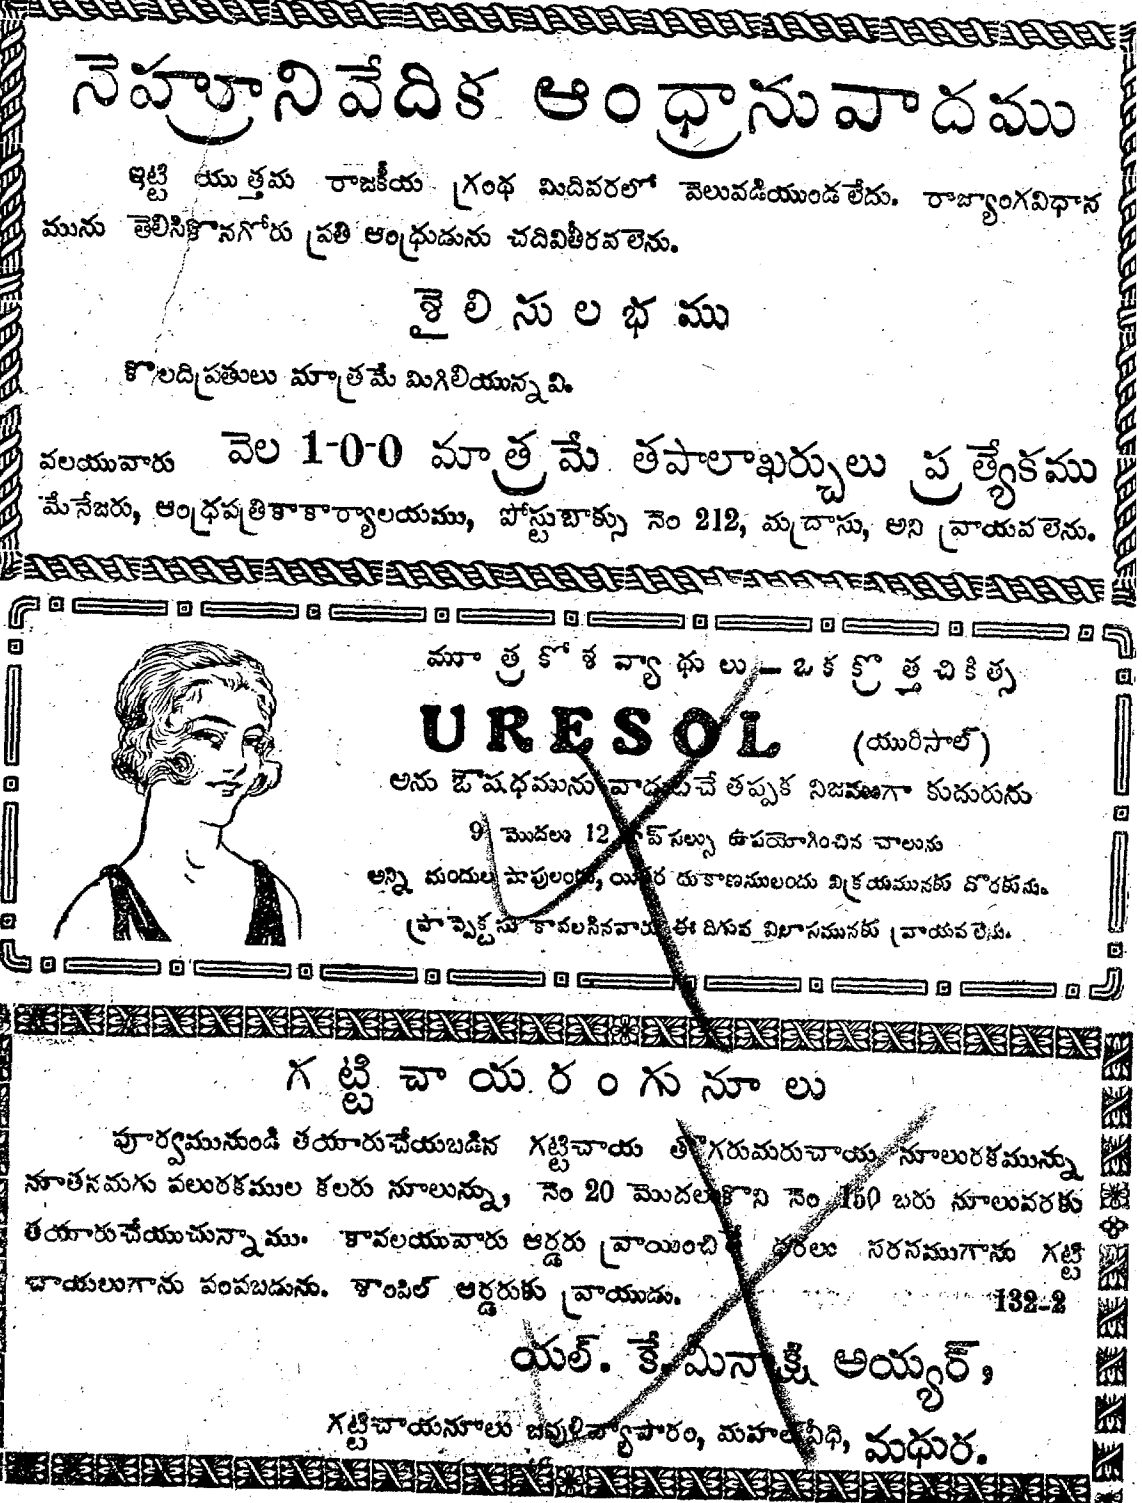 నెహ్రూనివేదిక ఆంధ్రానువాదము
ఇట్టి యుత్తమ రాజకీయ గ్రంథ మిదివరలో వెలువడియుండలేదు. రాజ్యాంగవిధాన
మును తెలిసికొనగోరు ప్రతి ఆంధ్రుడును చదివితీరవలెను.
శైలి సులభము
కొలదిప్రతులు మాత్రమే మిగిలియున్నవి.
వలయువారు వెల 1-0-0 మాత్రమే తపాలాఖర్చులు ప్రత్యేకము
మేనేజరు, ఆంధ్రపత్రికాకార్యాలయము, పోస్టుబాక్సు నెం 212, మద్రాసు, అని వ్రాయవలెను.
మూత్రకోశవ్యాధులు — ఒక క్రొత్త చికిత్స
URESOL (యురీసాల్)
అను ఔషధమును వాడుటచే తప్పక నిజముగా కుదురును
9 మొదలు 12 ఉపయోగించిన చాలును
అన్ని మందుల షాపులందు, యితర దుకాణములందు విక్రయమునకు దొరకును.
ప్రాస్పెక్టసు కావలసినవారు ఈ దిగువ విలాసమునకు వ్రాయవలెను.
గట్టిచాయరంగునూలు
పూర్వమునుండి తయారుచేయబడిన గట్టిచాయ తొగరుమరుచాయ నూలురకమున్ను
నూతనమగు పలురకముల కలరు నూలున్ను, నెం 20 మొదలుకొని నెం 150 బరు నూలువరకు
తయారుచేయుచున్నాము. కావలయువారు ఆర్డరు వ్రాయించితే ధరలు సరసముగాను గట్టి
చాయలుగాను పంపబడును. శాంపిల్ ఆర్డరుకు వ్రాయుడు. 132-2
యల్. కే. మీనాక్షి అయ్యర్,
గట్టిచాయనూలు జవుళివ్యాపారం, మహల్‌వీధి, మధుర.